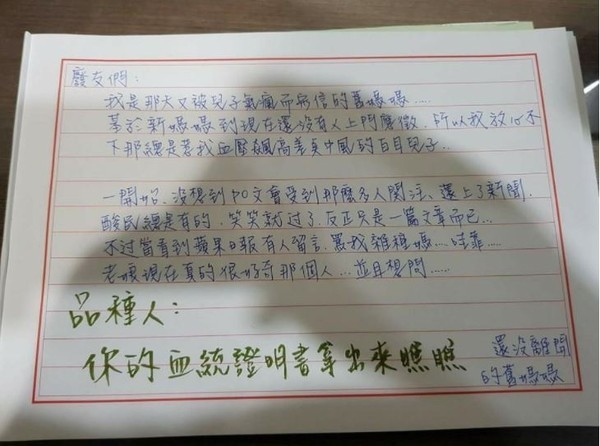 廢友們：
我是那天又被兒子氣瘋而寫信的舊媽媽....
茤於新媽媽到現在還沒有人上門應徵，所以我放心不
下那總是惹我血壓飆高差点中風的白目兒子...
一開始，沒想到PO文會受到那麼多人關注、還上了新聞，
酸民總是有的，笑笑就过了，反正只是一篇文章而已...
不过當看到蘋果日報有人留言，罵我雜種嗎...哇靠...
老娘現在真的很好奇那個人...並且想問.....
品種人：
你的血統證明書拿出來瞧瞧
還沒離開
的舊媽媽